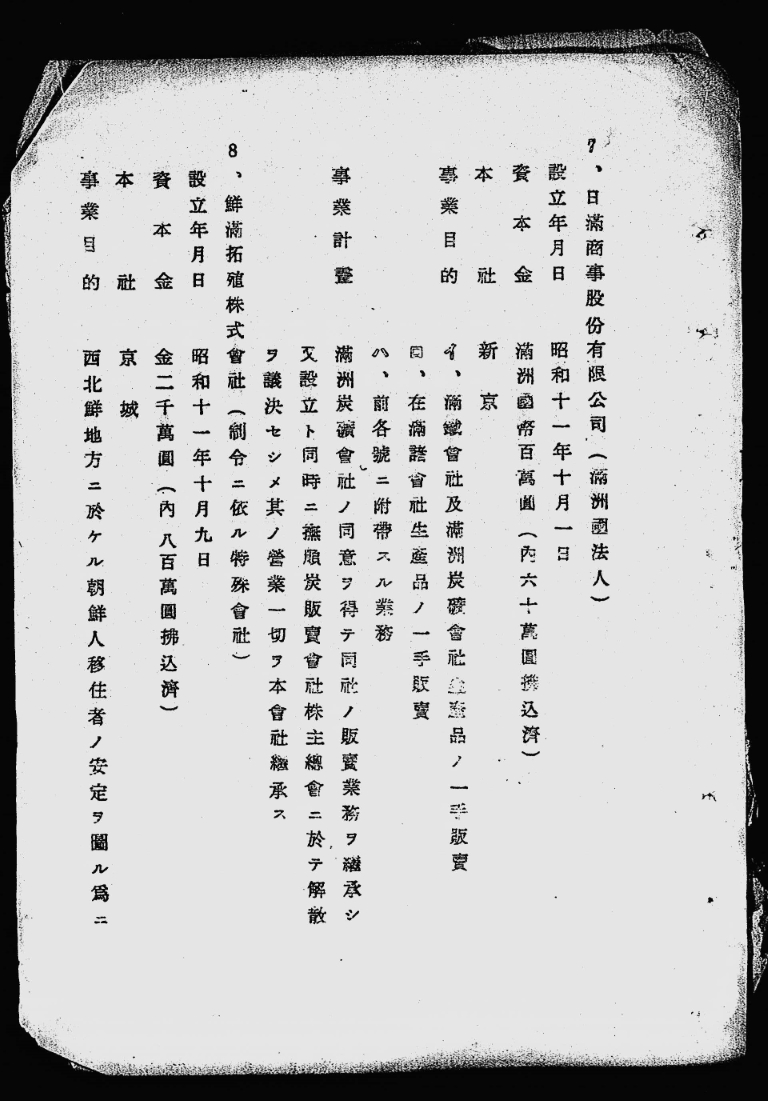 7、日滿商事股份有限公司（滿洲國法人）
設立年月日　昭和十一年十月一日
資本金　滿洲國幣百萬圓（內六十萬圓拂込濟）
本社　新京
事業目的　イ、滿鐵會社及滿洲炭礦會社生產品ノ一手販賣
ロ、在滿諸會社生產品ノ一手販賣
ハ、前各號ニ附帶スル業務
事業計畫　滿洲炭礦會社ノ同意ヲ得テ同社ノ販賣業務ヲ繼承シ
又設立ト同時ニ撫順炭販賣會社株主總會ニ於テ解散
ヲ議決セシメ其ノ營業一切ヲ本會社繼承ス
8、鮮滿拓殖株式會社（制令ニ依ル特殊會社）
設立年月日　昭和十一年十月九日
資本金　金二千萬圓（內八百萬圓拂込濟）
本社　京城
事業目的　西北鮮地方ニ於ケル朝鮮人移住者ノ安定ヲ圖ル爲ニ